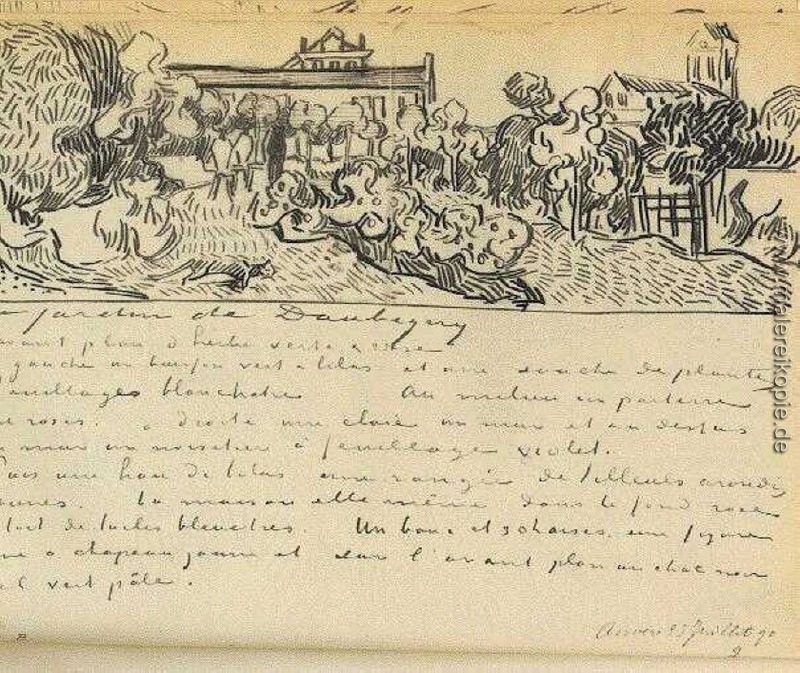 jardin de Daubigny
avant plan d'herbe verte & rose
gauche un buisson vert & lilas et une souche de plantes
feuillages blanchatres Au milieu un parterre
de roses. à droite une claie un mur et au dessus
mur un noisetier à feuillage violet.
Puis une haie de lilas une rangée de tilleuls arrondis
jaunes. La maison elle même dans le fond rose
toit de tuiles bleuâtres. Un banc et 3 chaises. une figure
à chapeau jaune et sur l'avant plan un chat noir
vert pâle.
Auvers 23 Juillet 90
2
www.malereikopie.de